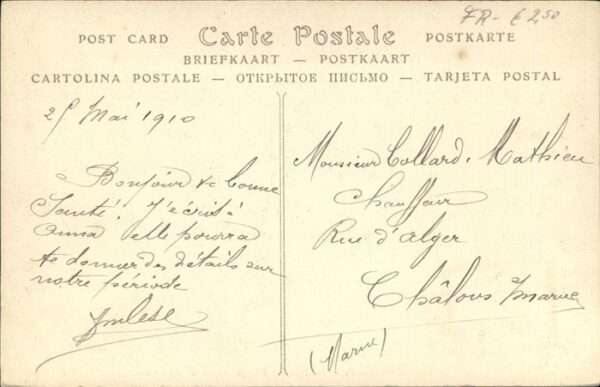 FR - € 2,50
POST CARD Carte Postale POSTKARTE
BRIEFKAART — POSTKAART
CARTOLINA POSTALE — ОТКРЫТОЕ ПИСЬМО — TARJETA POSTAL
25 Mai 1910
Bonjour & bonne
Santé! J'écris à
Anna elle pourra
te donner des détails sur
notre période
Monsieur Collard-Mathieu
Chauffeur
Rue d'Alger
Châlons s/ Marne
(Marne)